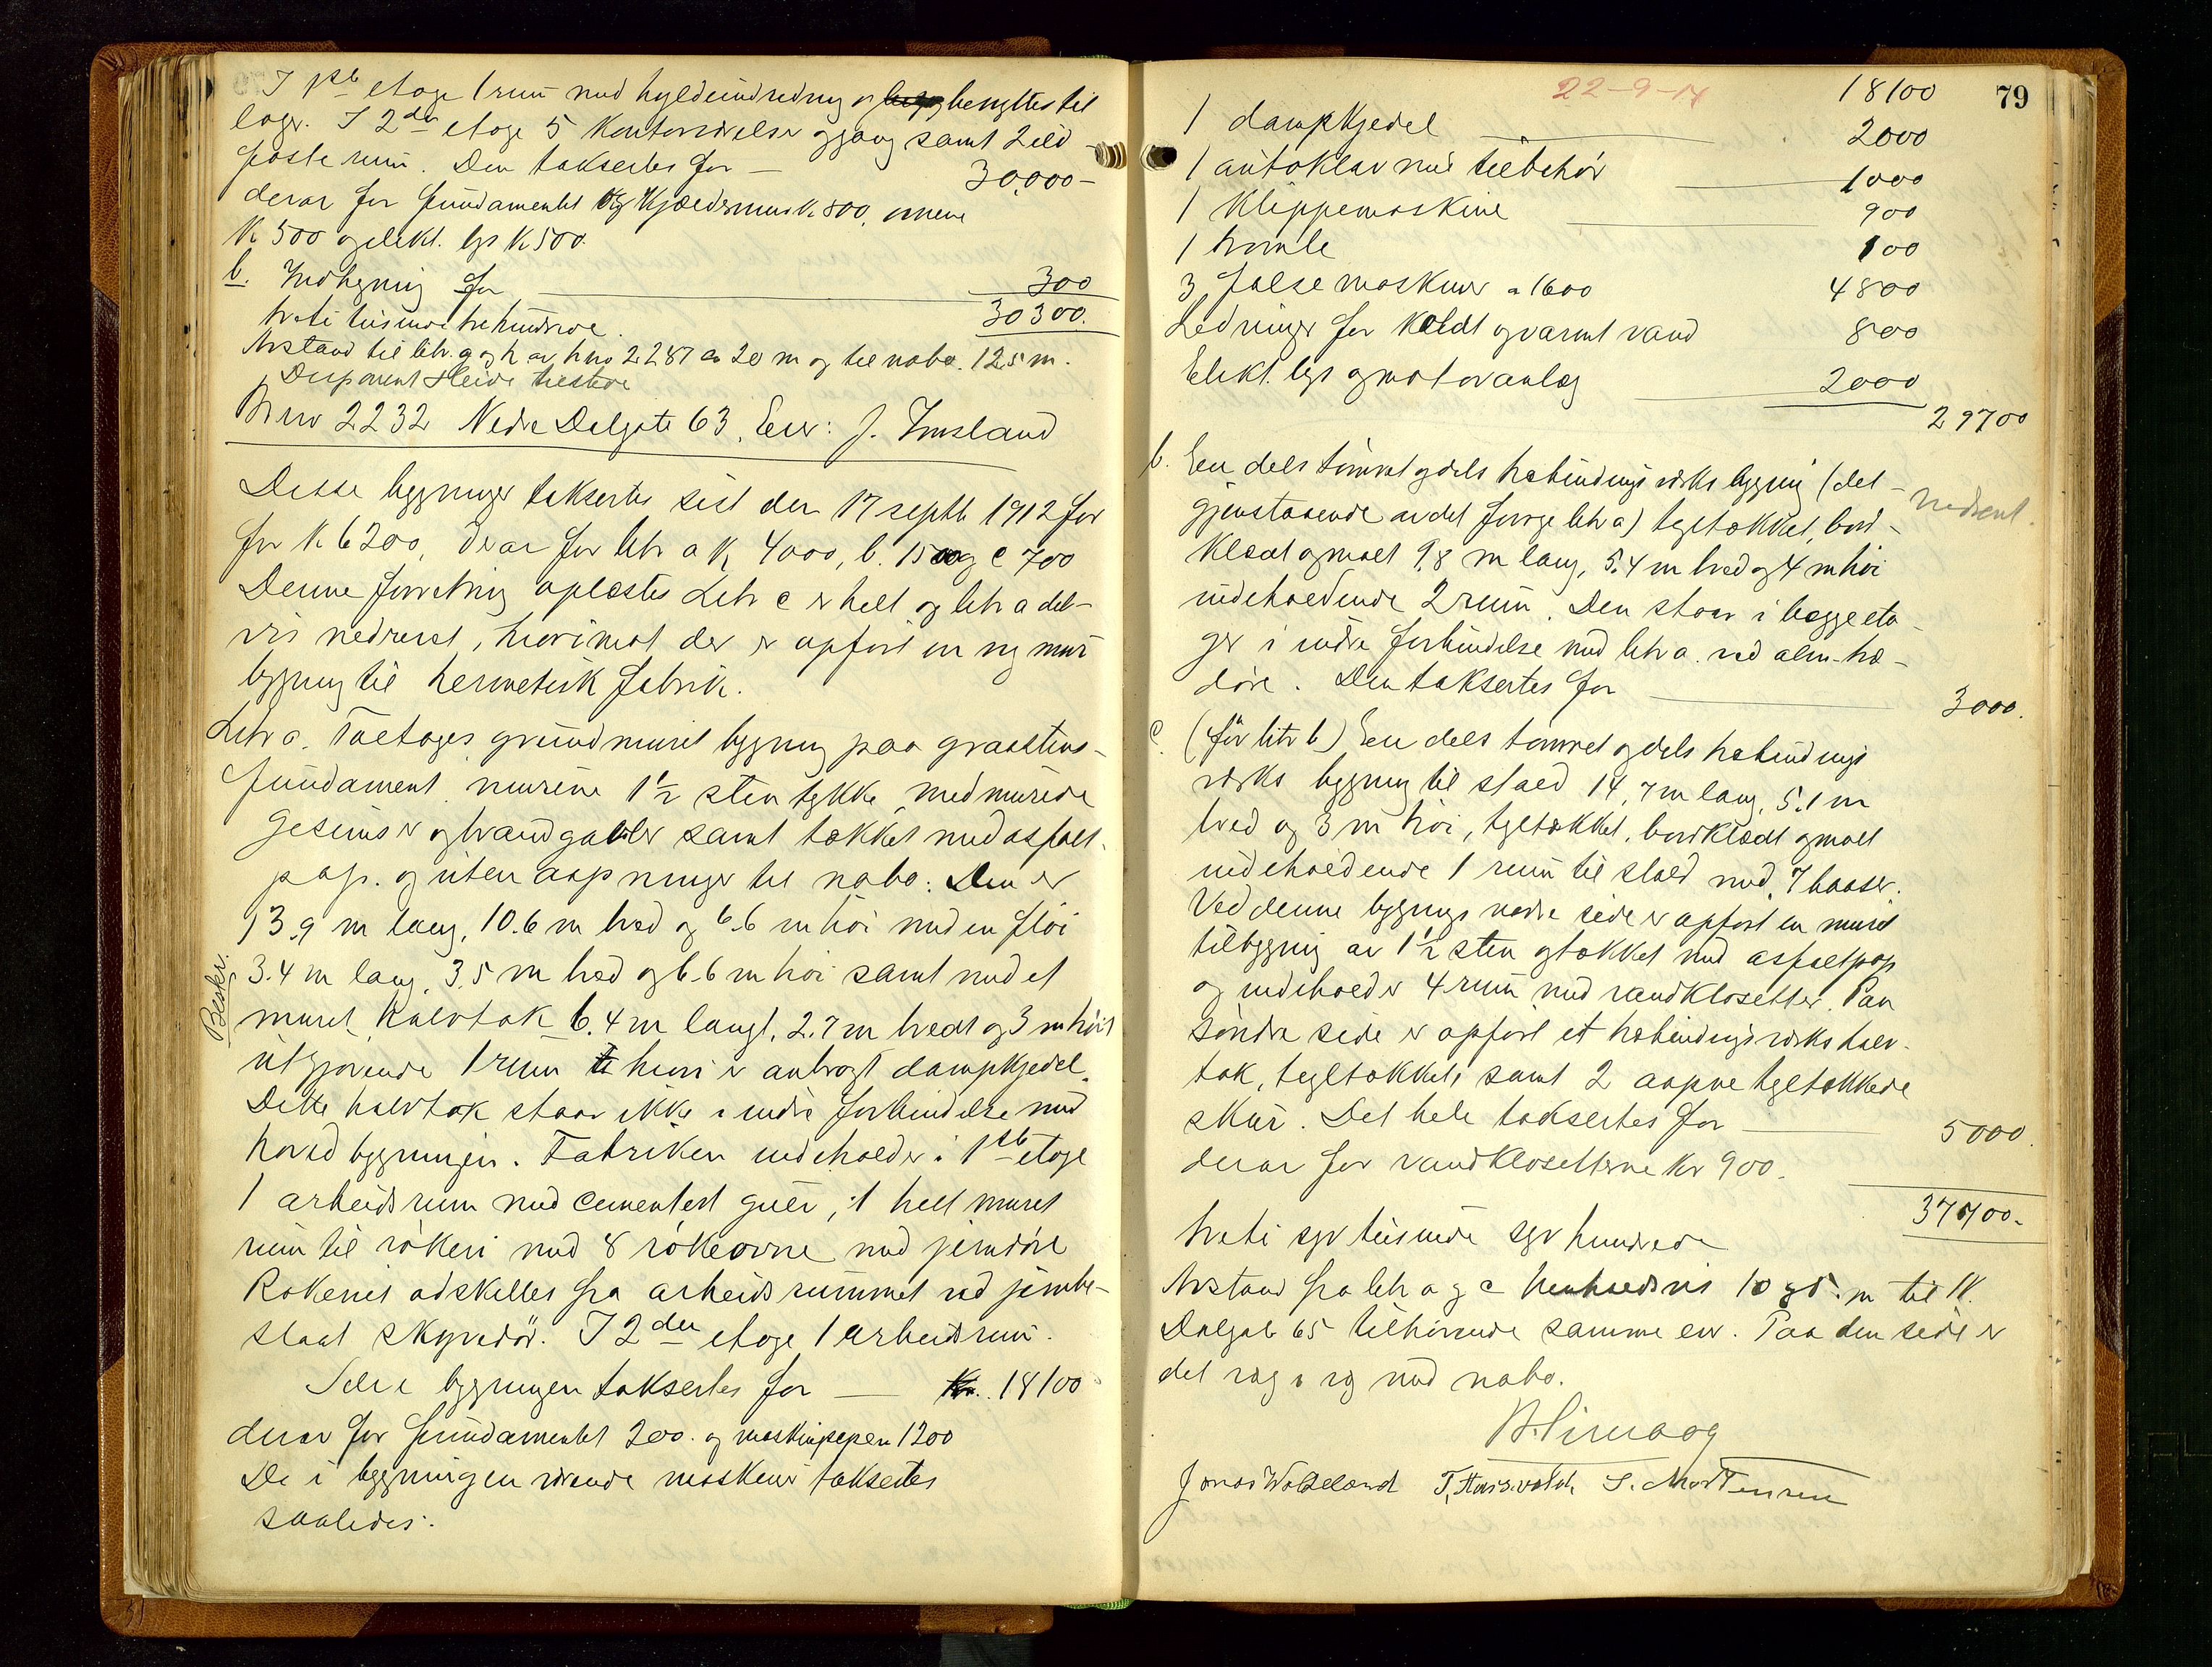 I 1ste etage 1 rum med hyldeindredning og benyttes til
lager. I 2den etage 5 Kontorværelser og gang samt 2 ild-
faste rum. Den taksertes for — 30.000-
derav for fundamentet og Kjældermur K. 800, ovnene
K 500 og elekt. lys K 500.
b. Indhegning for 300
treti tusinde trehundrede. 30300.
Avstand til litr. g og h av hno 2287 ca 20 m og til nabo. 12,5 m.
Disponent Heide tilstede
Br no 2232 Nedre Dalgate 63, Eier: J. Imsland
Disse bygninger taksertes sist den 17 septb 1912 for
for K 6200, derav for litr a K 4000, b. 1500 og c 700
Denne forretning oplæstes Litr c er helt og litr a del-
vis nedrevet, hvorimot der er opført en ny mur
bygning til hermetisk fabrik.
Litr a. Toetages grundmuret bygning paa graastens-
fundament, murene 1½ sten tykke, med murede
gesimser og brandgavler samt tækket med asfalt-
pap. og uten aapninger til nabo. Den er
13.9 m lang, 10.6 m bred og 6.6 m høi med en fløi
3.4 m lang, 3.5 m bred og 6.6 m høi samt med et
Beskr.
muret halvtak 6.4 m langt, 2.7 m bredt og 3 m høit
utgjørende 1 rum hvori er anbragt dampkjedel.
Dette halvtak staar ikke i indre forbindelse med
hovedbygningen. Fabriken indeholder i 1ste etage
1 arbeidsrum med cementert gulv, 1 helt muret
rum til røkeri med 8 røkeovne med jerndøre
Rokeriet adskilles fra arbeidsrummet ved jernbe-
slaat skyvedør. I 2den etage 1 arbeidsrum.
Selve bygningen taksertes for — Kr. 18100
derav for fundamentet 200. og maskinpipen 1200
De i bygningen værende maskiner taksertes
saaledes:
79
22-9-14
18100
1 dampkjedel 2000
1 autoklav med tilbehør 1000
1 Klippemaskine 900
1 tromle 100
3 falsemaskiner a 1600 4800
Ledninger for koldt og varmt vand 800
Elekt. lys og motoranlæg 2000
29700
b. En dels tømret og dels træbindingsverks bygning (det
nedrevet.
gjenstaaende av det forrige litr a) tegltækket, bord-
klædt og malt 9.8 m lang, 5.4 m bred og 4 m høi
indeholdende 2 rum. Den staar i begge eta-
ger i indre forbindelse med litr a. ved alm. træ-
døre. Den taksertes for 3000.
c. (før litr b) En dels tømret og dels træbindings
verks bygning til stald 14,7 m lang, 5.1 m
bred og 3 m høi, tegltækket, bordklædt og malt
indeholdende 1 rum til stald med 7 baaser.
Ved denne bygnings nordre side er opført en muret
tilbygning av 1½ sten og tækket med asfaltpap
og indeholder 4 rum med vandklosetter. Paa
søndre side er opført et træbindingsverks halv-
tak, tegltækket, samt 2 aapne tegltækkede
skur. Det hele taksertes for 5000.
derav for vandklosetterne Kr 900.
37700.-
treti syv tusinde syv hundrede
Avstand fra litr a og c henholdsvis 10 og 5. m til N.
Dalgate 65 tilhørende samme eier. Paa den side er
det væg i væg med nabo.
Jonas Wetteland S. Mortensen